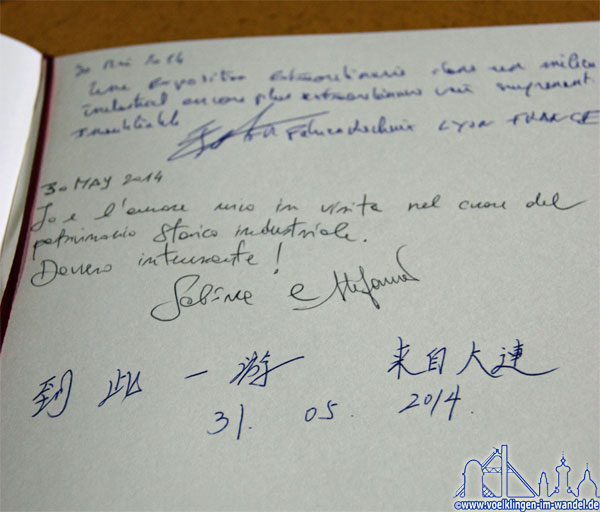 30 Mai 2014
Une exposition extraordinaire dans un milieu
industriel encore plus extraordinaire
LYON FRANCE
30 MAY 2014
Io e l'amore mio in visita nel cuore del
patrimonio storico industriale.
Davvero interessante!
Sabine e Stefano
到此一游 来自大連
31. 05. 2014.
©www.voelklingen-im-wandel.de